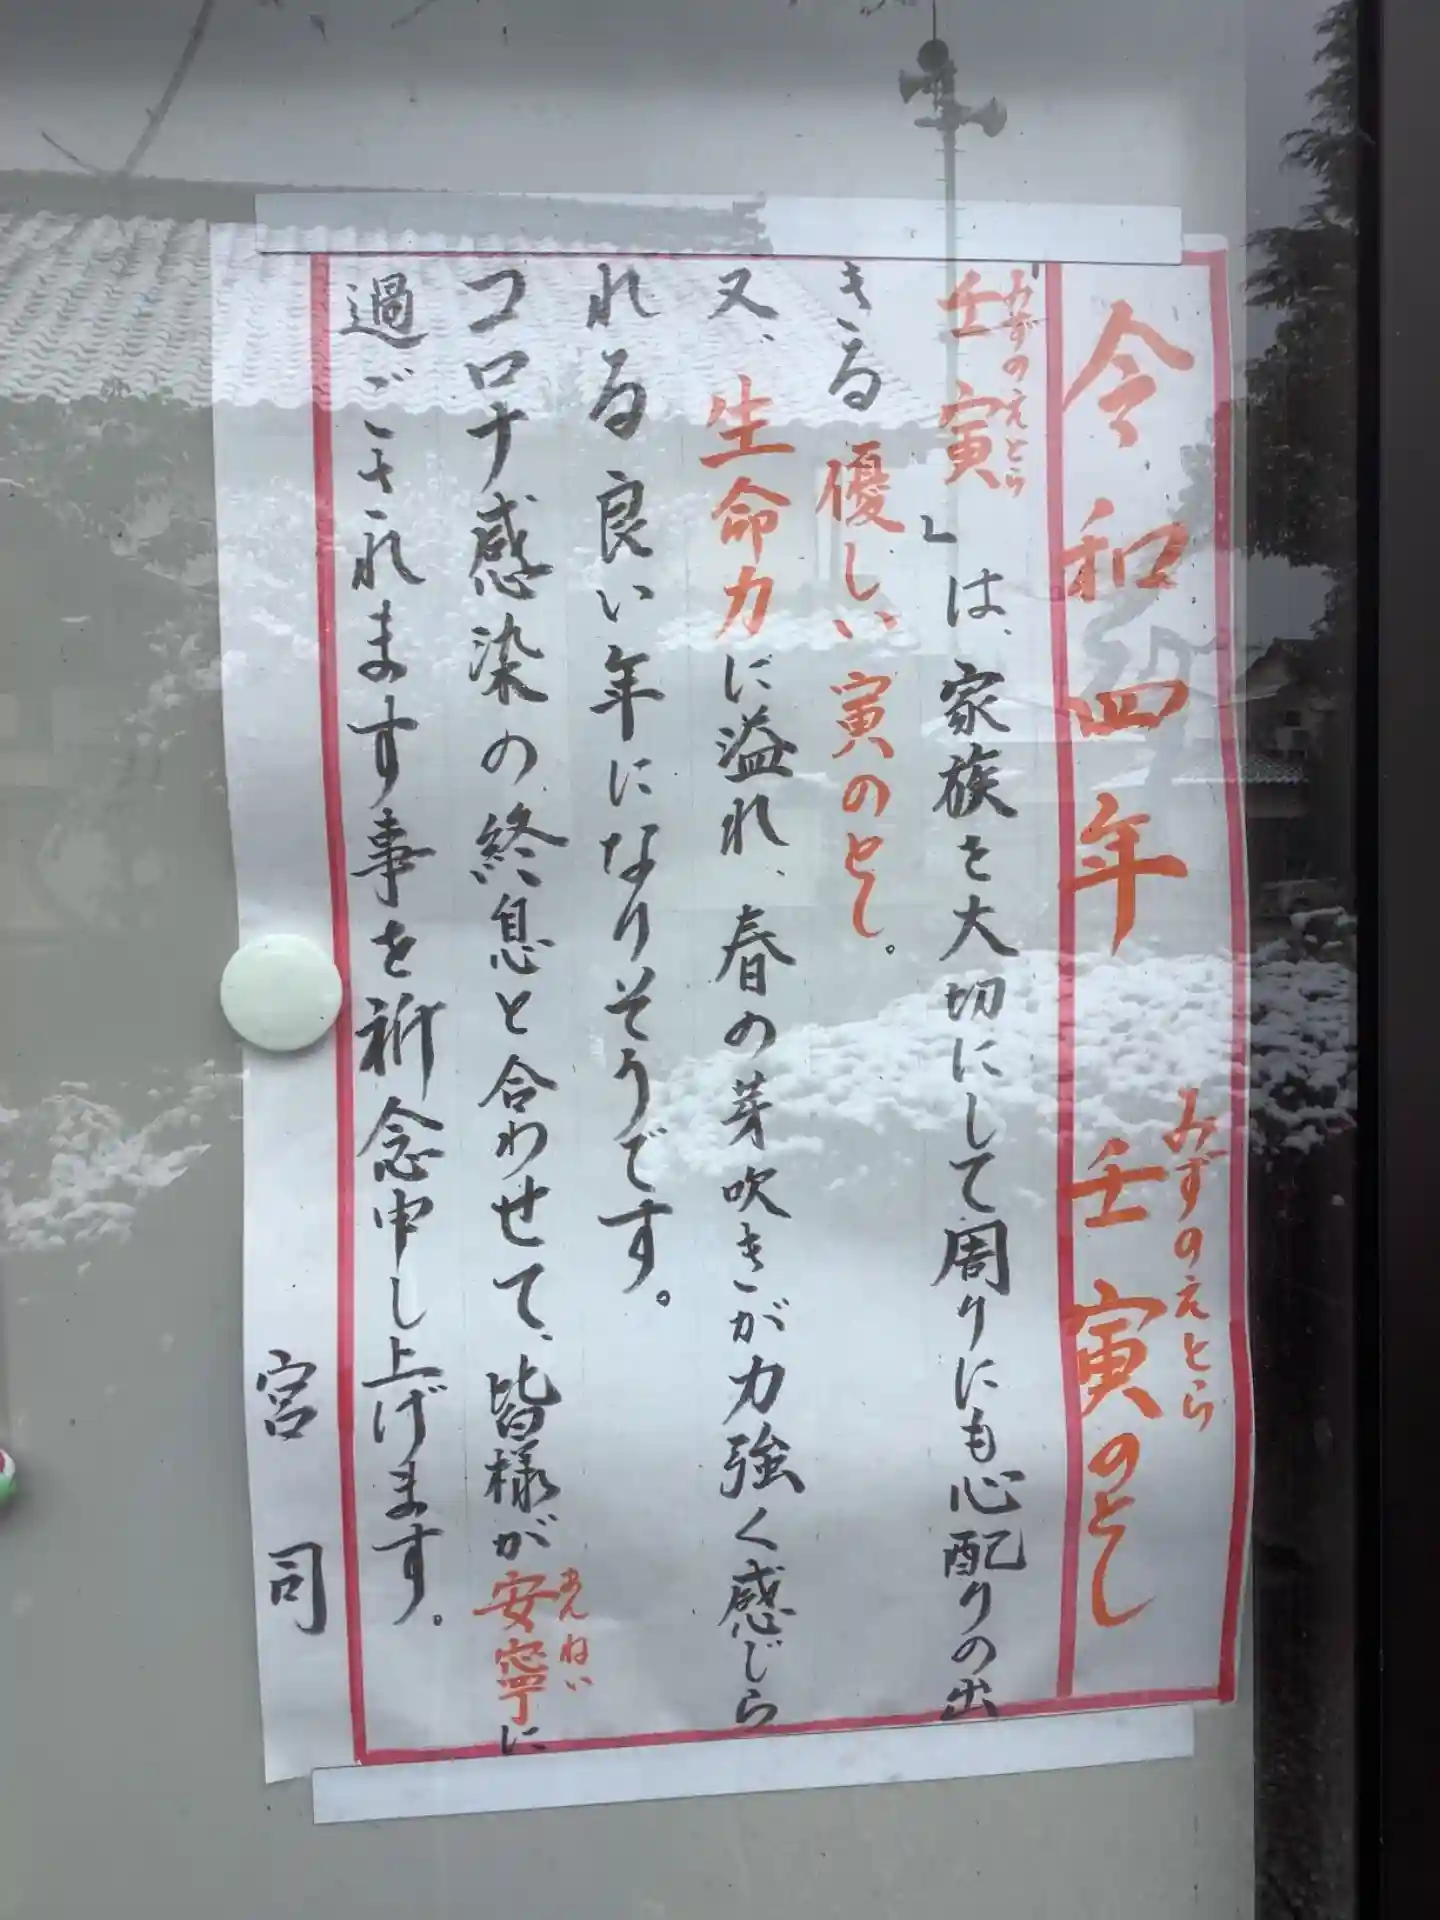 令和四年 壬寅のとし
みずのえとら
みずのえとら
「壬寅」は、家族を大切にして周りにも心配りの出
きる優しい寅のとし。
又、生命力に溢れ、春の芽吹きが力強く感じら
れる良い年になりそうです。
コロナ感染の終息と合わせて、皆様が安寧に
あんねい
過ごされます事を祈念申し上げます。
宮司